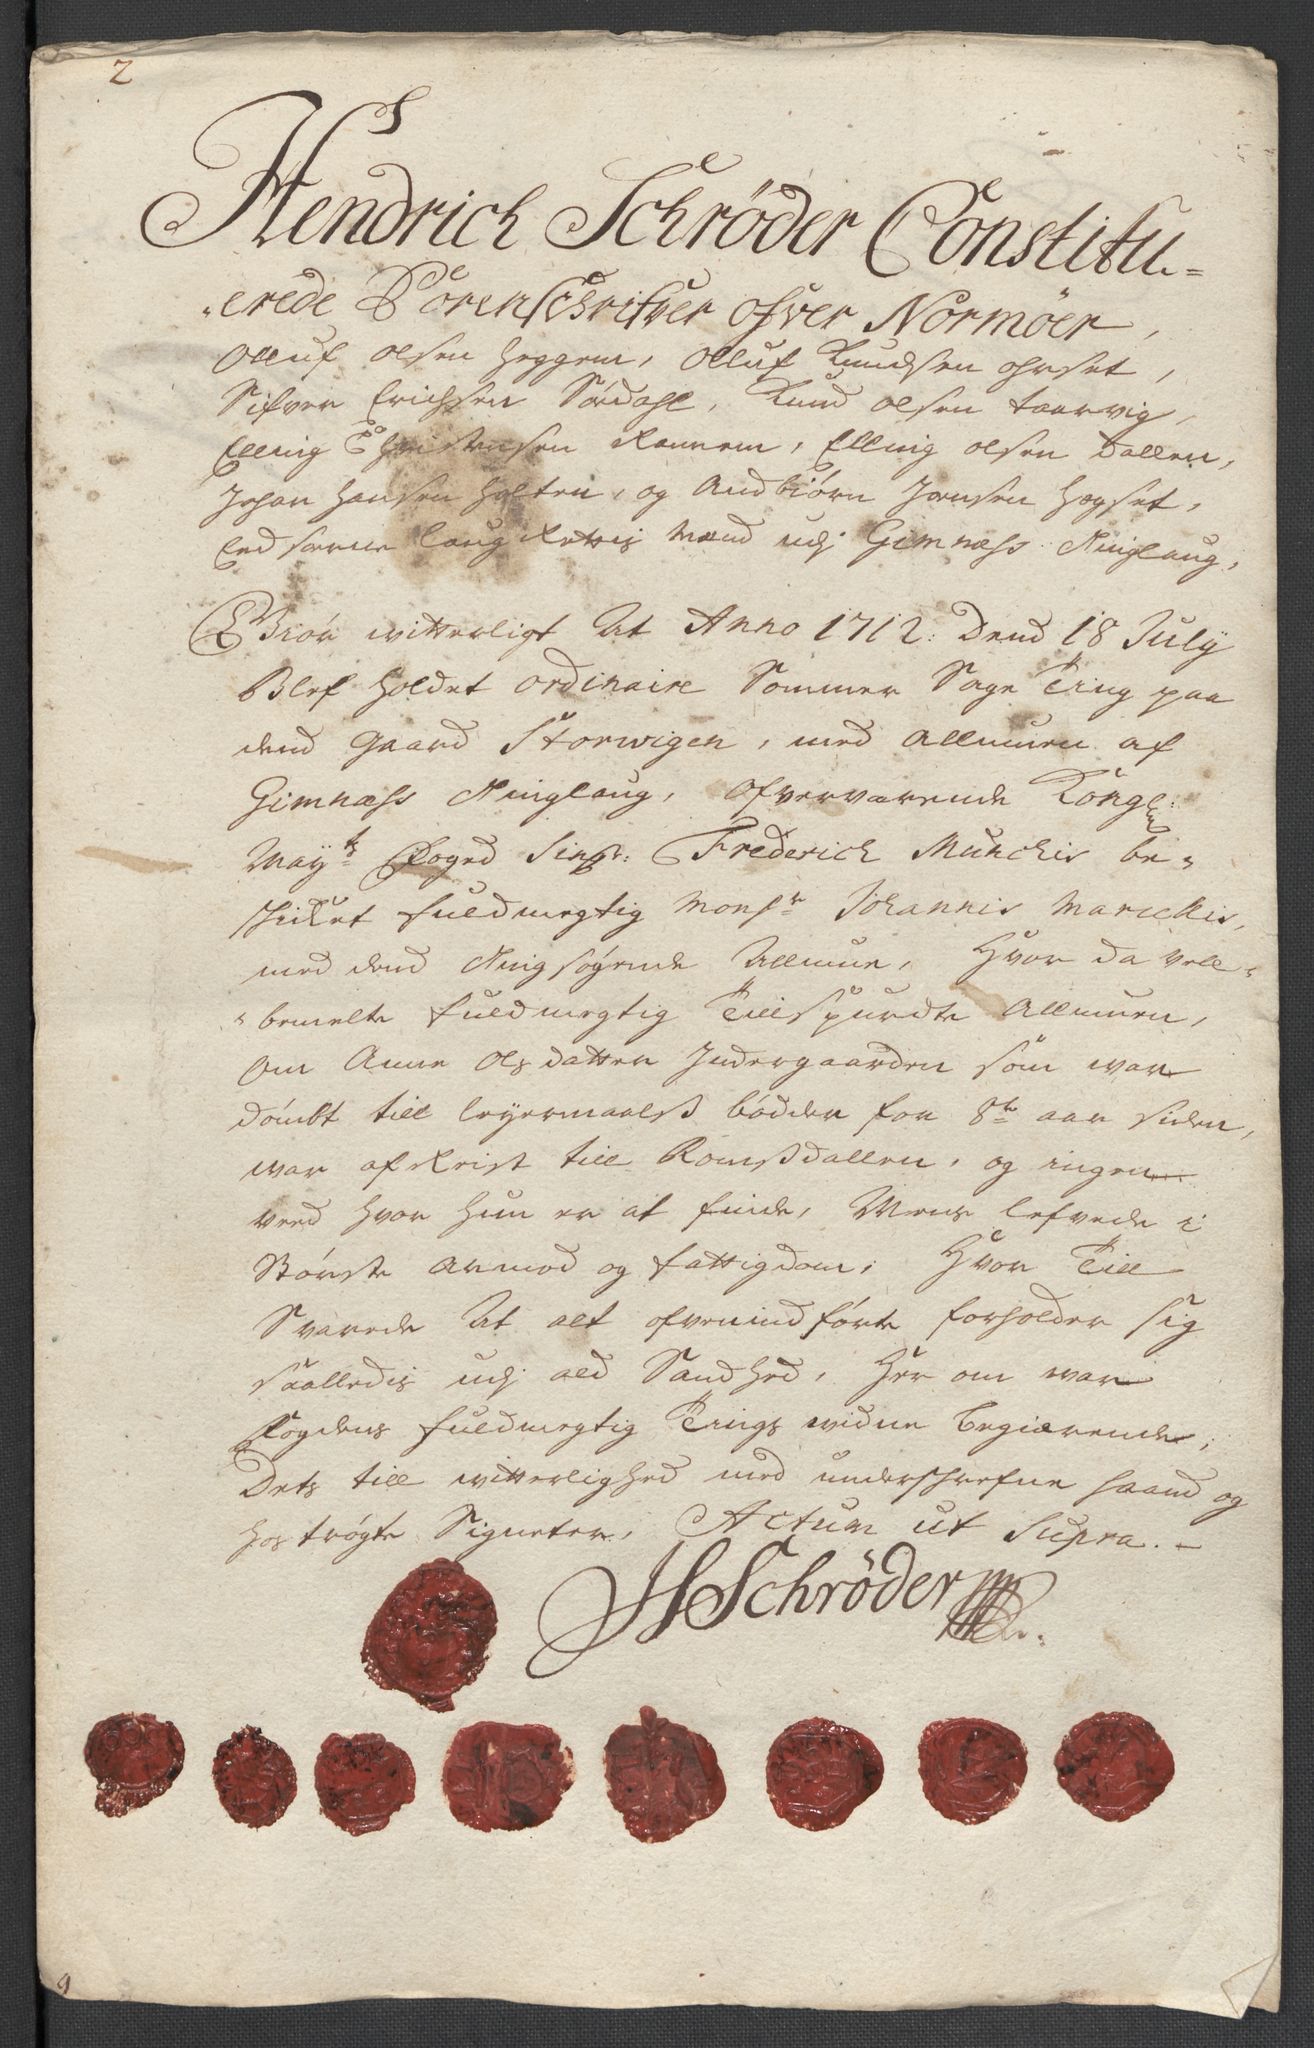 2
Hendrich Schröder Constitu-
erede Sorenschrifver ofver Normöer,
Olluf Olsen Heggem, Olluf Knudsen Ohrset,
Sifver Erichsen Sördahl, Knud Olsen Taarvig,
Elling Christensen Rannem, Elling Olsen Dallen,
Johan Hansen Holten, og Andbiörn Jonsen Høgset,
Eedsorne Laug Rettis Mænd udj Gimnæss Tinglaug,
Giör witterligt At Anno 1712: Dend 18 July
Blef holdet ordinaire Sommer Sage Ting paa
dend Gaard Storwigen, med Allmuen af
Gimnæss Tinglaug, Ofverværende Kongl:
May:ts Foged Sing:r Frederich Munchis be-
skiket fuldmegtig Mons:r Johannis Marickis,
med dend Ting søgende Allmue, Hvor da vell-
bemelte fuldmegtig Tillspurdte Allmuen,
Om Anne Olsdatter Indergaarden som war
dömbt till leyermaalss böder for 8te aar siden,
war af Reist till Romssdallen, og ingen
veed hvor hun er at finde, Mens lefvede i
Störste armod og fattigdom, Hvor Till
Svarede At alt ofvenindförte forholder sig
saalledis udj ald Sandhed, Her om war
Fogdens fuldmegtig Tings widne begiærende,
Dets till witterlighed med underschrefne haand og
hos trögte Signeter, Actum ut Supra.-
HSchröder
9